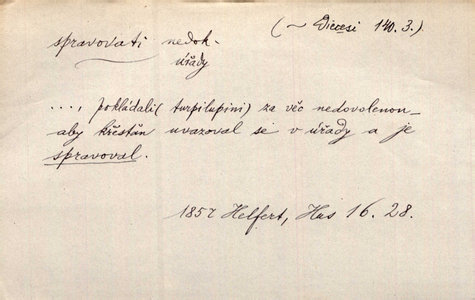 (~ Diecesi 140. 3.)
spravovati nedok.
úřady
..., pokládali (turpilupini) za věc nedovolenou–
aby křestan uvazoval se v úřady a je
spravoval.
1857 Helfert, Hus 16. 28.